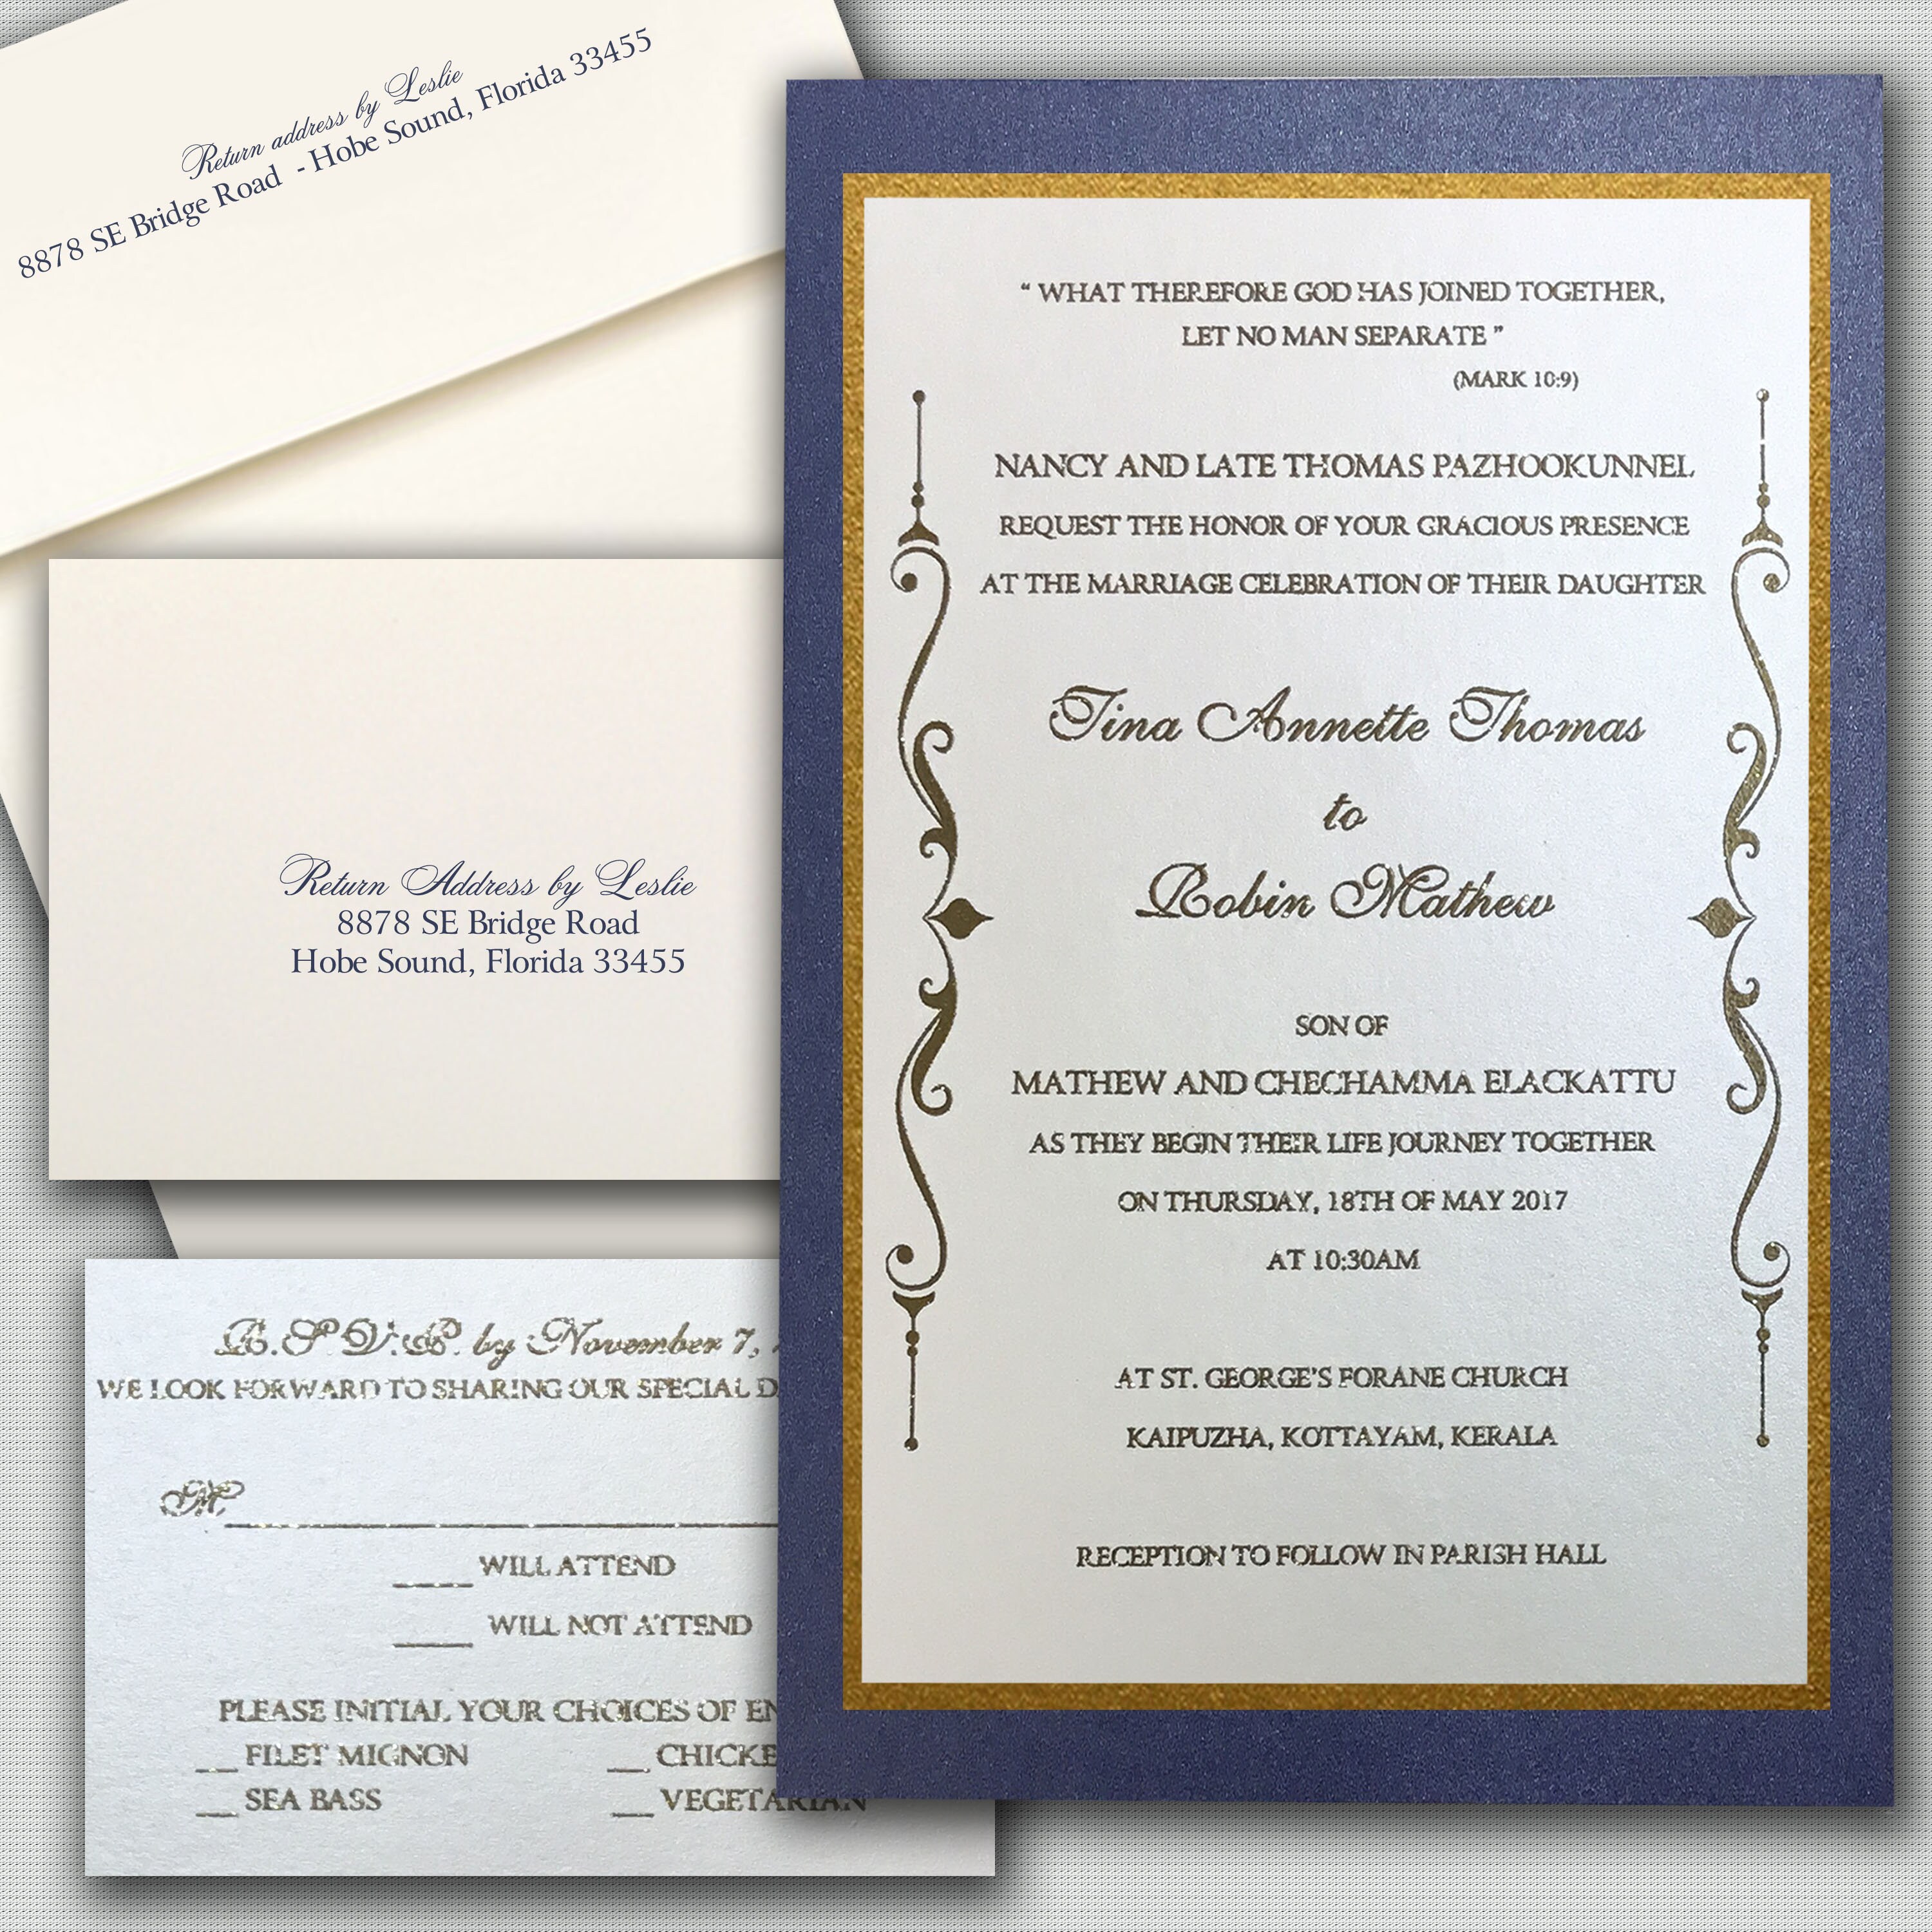 Return address by Leslie
8878 SE Bridge Road - Hobe Sound, Florida 33455
Return Address by Leslie
8878 SE Bridge Road
Hobe Sound, Florida 33455
R.S.V.P. by November 7,
WE LOOK FORWARD TO SHARING OUR SPECIAL
M
WILL ATTEND
WILL NOT ATTEND
PLEASE INITIAL YOUR CHOICES OF
FILET MIGNON
SEA BASS
VEGETARIAN
“ WHAT THEREFORE GOD HAS JOINED TOGETHER,
LET NO MAN SEPARATE ”
(MARK 10:9)
NANCY AND LATE THOMAS PAZHOOKUNNEL
REQUEST THE HONOR OF YOUR GRACIOUS PRESENCE
AT THE MARRIAGE CELEBRATION OF THEIR DAUGHTER
Tina Annette Thomas
to
Robin Mathew
SON OF
MATHEW AND CHECHAMMA ELACKATTU
AS THEY BEGIN THEIR LIFE JOURNEY TOGETHER
ON THURSDAY, 18TH OF MAY 2017
AT 10:30AM
AT ST. GEORGE'S FORANE CHURCH
KAIPUZHA, KOTTAYAM, KERALA
RECEPTION TO FOLLOW IN PARISH HALL